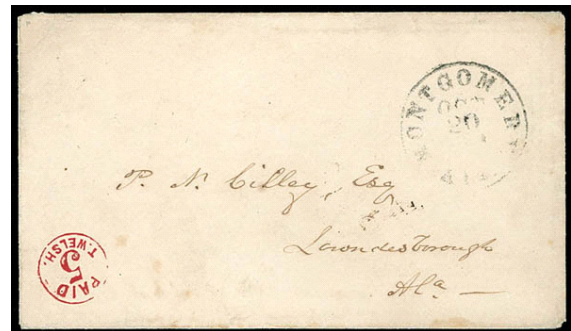 MONTGOMERY
OCT
20
P. N. Cilley, Esq
Lowndesborough
Ala
PAID
5
T. WELSH.